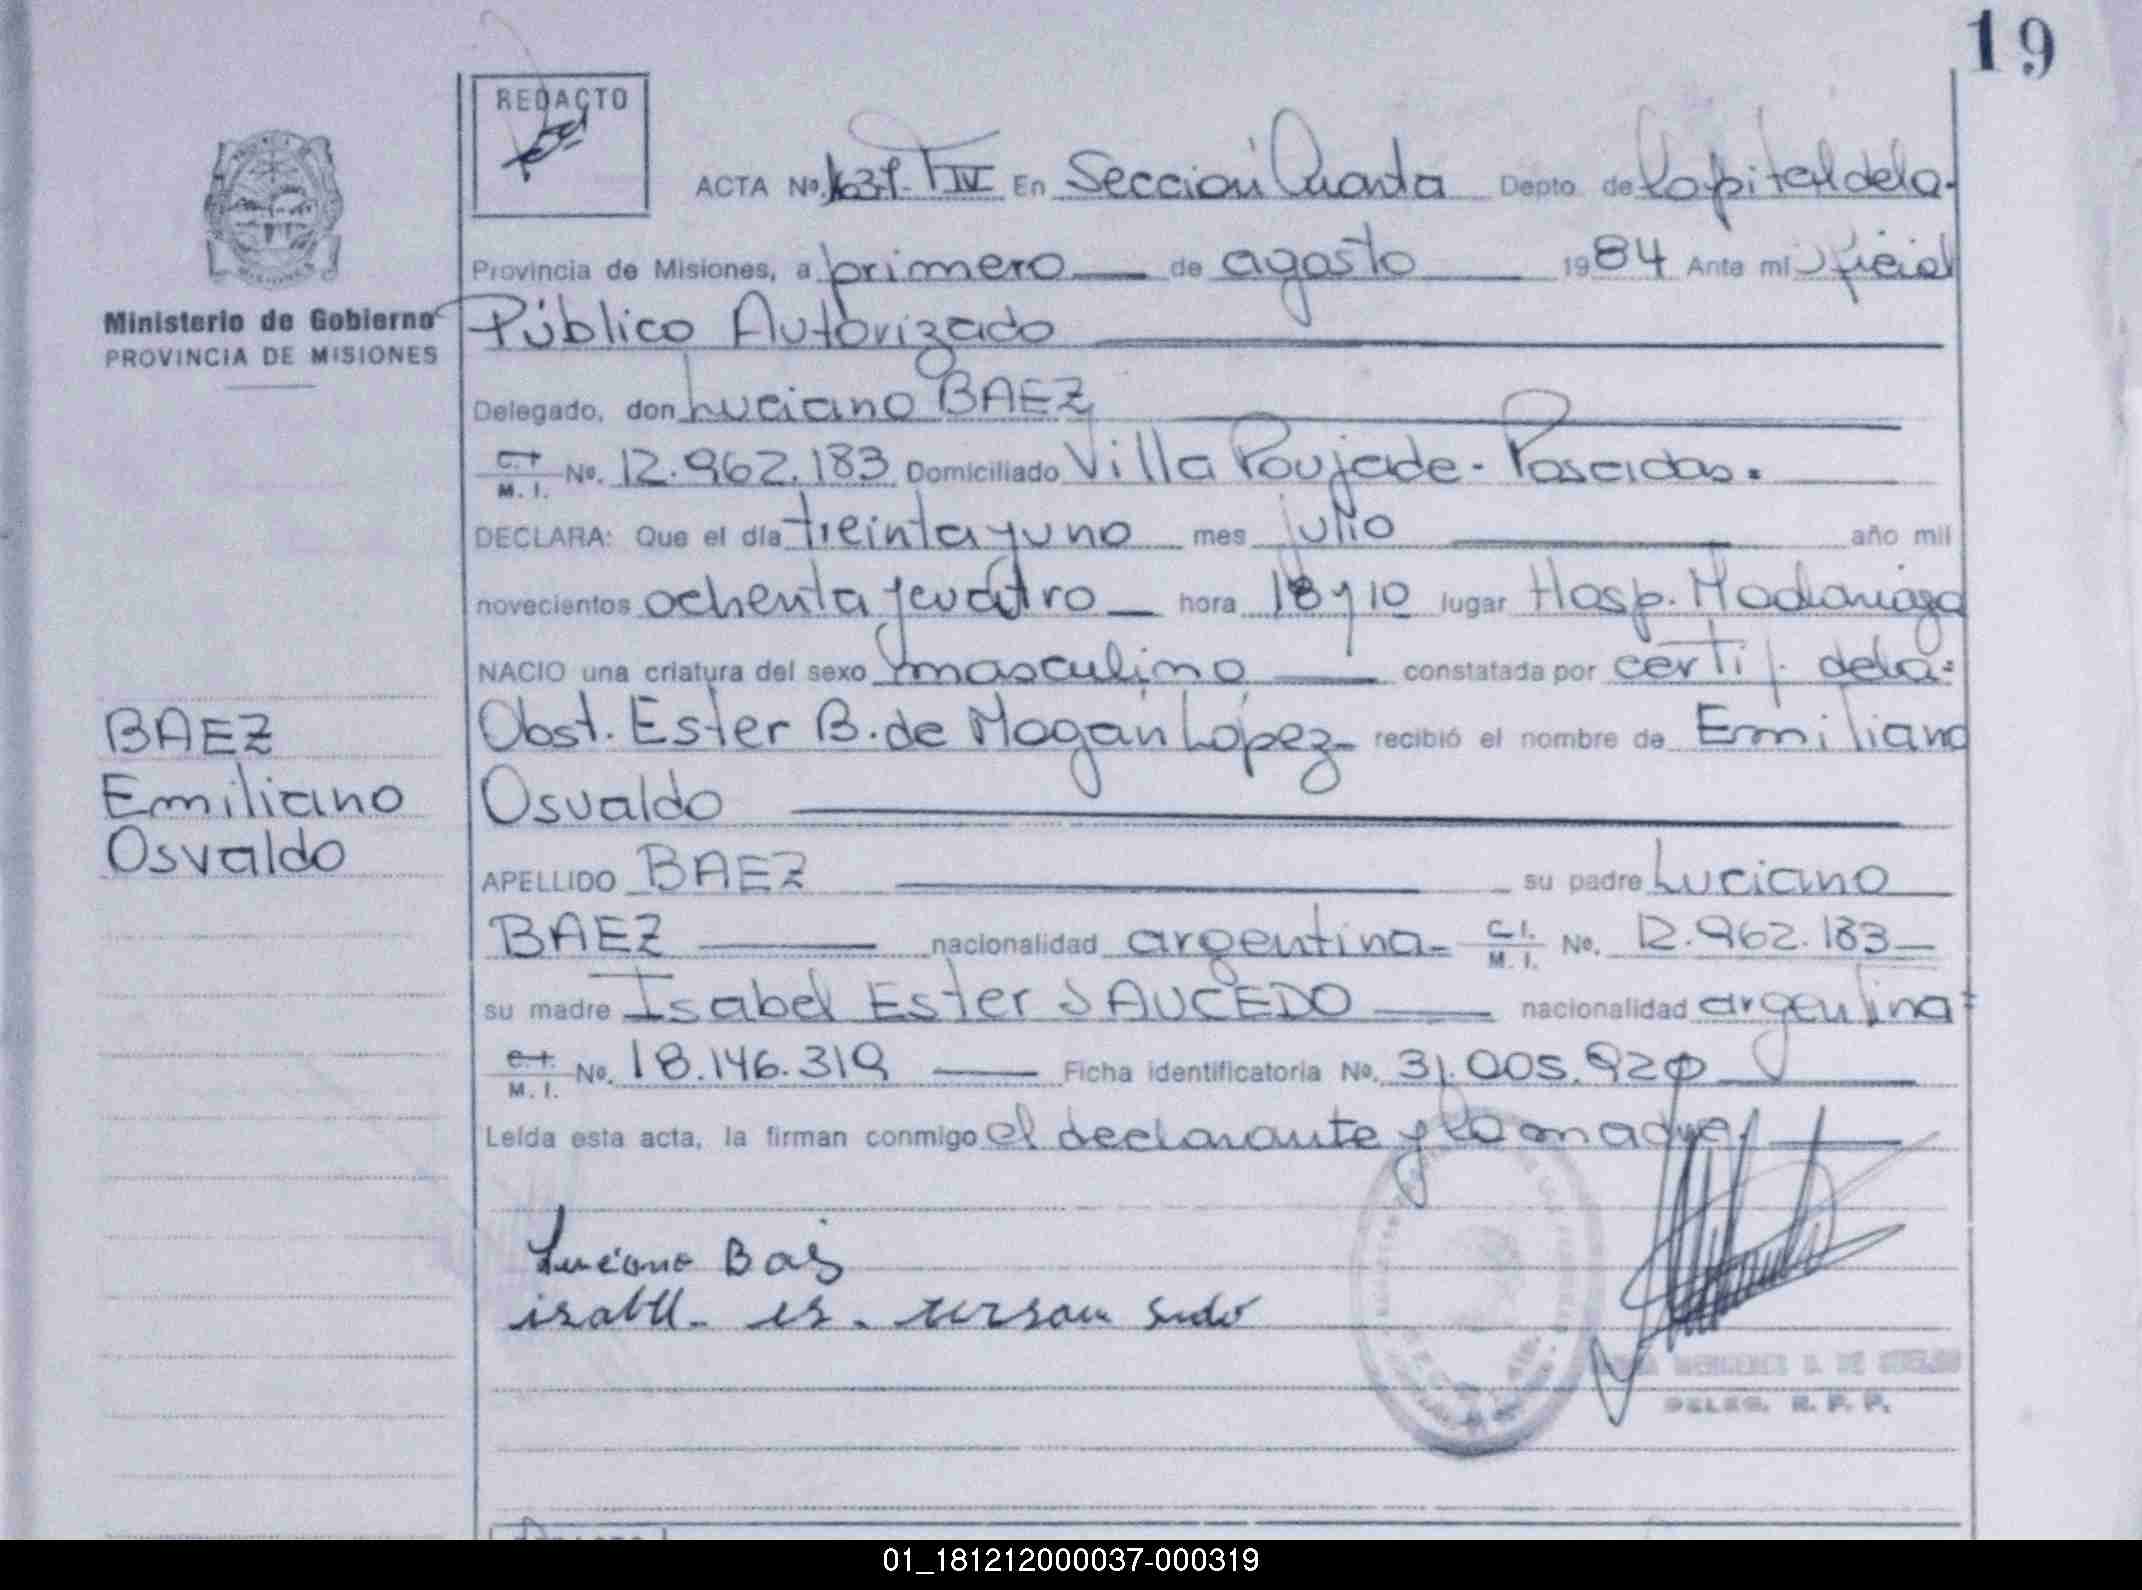 19
REDACTO
ACTA No. T IV En Sección Cuarta Depto de Capital de la-
Provincia de Misiones, a primero de agosto 1984 Ante mi Oficial
Ministerio de Gobierno
PROVINCIA DE MISIONES
Público Autorizado
Delegado, don Luciano BAEZ
C.I. M. I. No. 12.962.183 Domiciliado Villa Poujade - Posadas.
DECLARA: Que el día treinta y uno mes julio año mil
novecientos ochenta y cuatro hora 18 y 10 lugar Hosp. Madariaga
NACIO una criatura del sexo masculino constatada por certif. de la-
Obst. Ester B. de Mogan Lopez- recibió el nombre de Emiliano
Osvaldo
BAEZ
Emiliano
Osvaldo
APELLIDO BAEZ su padre Luciano
BAEZ nacionalidad argentina- C.I. M. I. No. 12.962.183-
su madre Isabel Ester SAUCEDO nacionalidad argentina-
C.I. M. I. No. 18.146.319 Ficha identificatoria No. 31.005.920
Leída esta acta, la firman conmigo el declarante y la madre
Luciano Baez
DELEG. R. P. P.
01_181212000037-000319